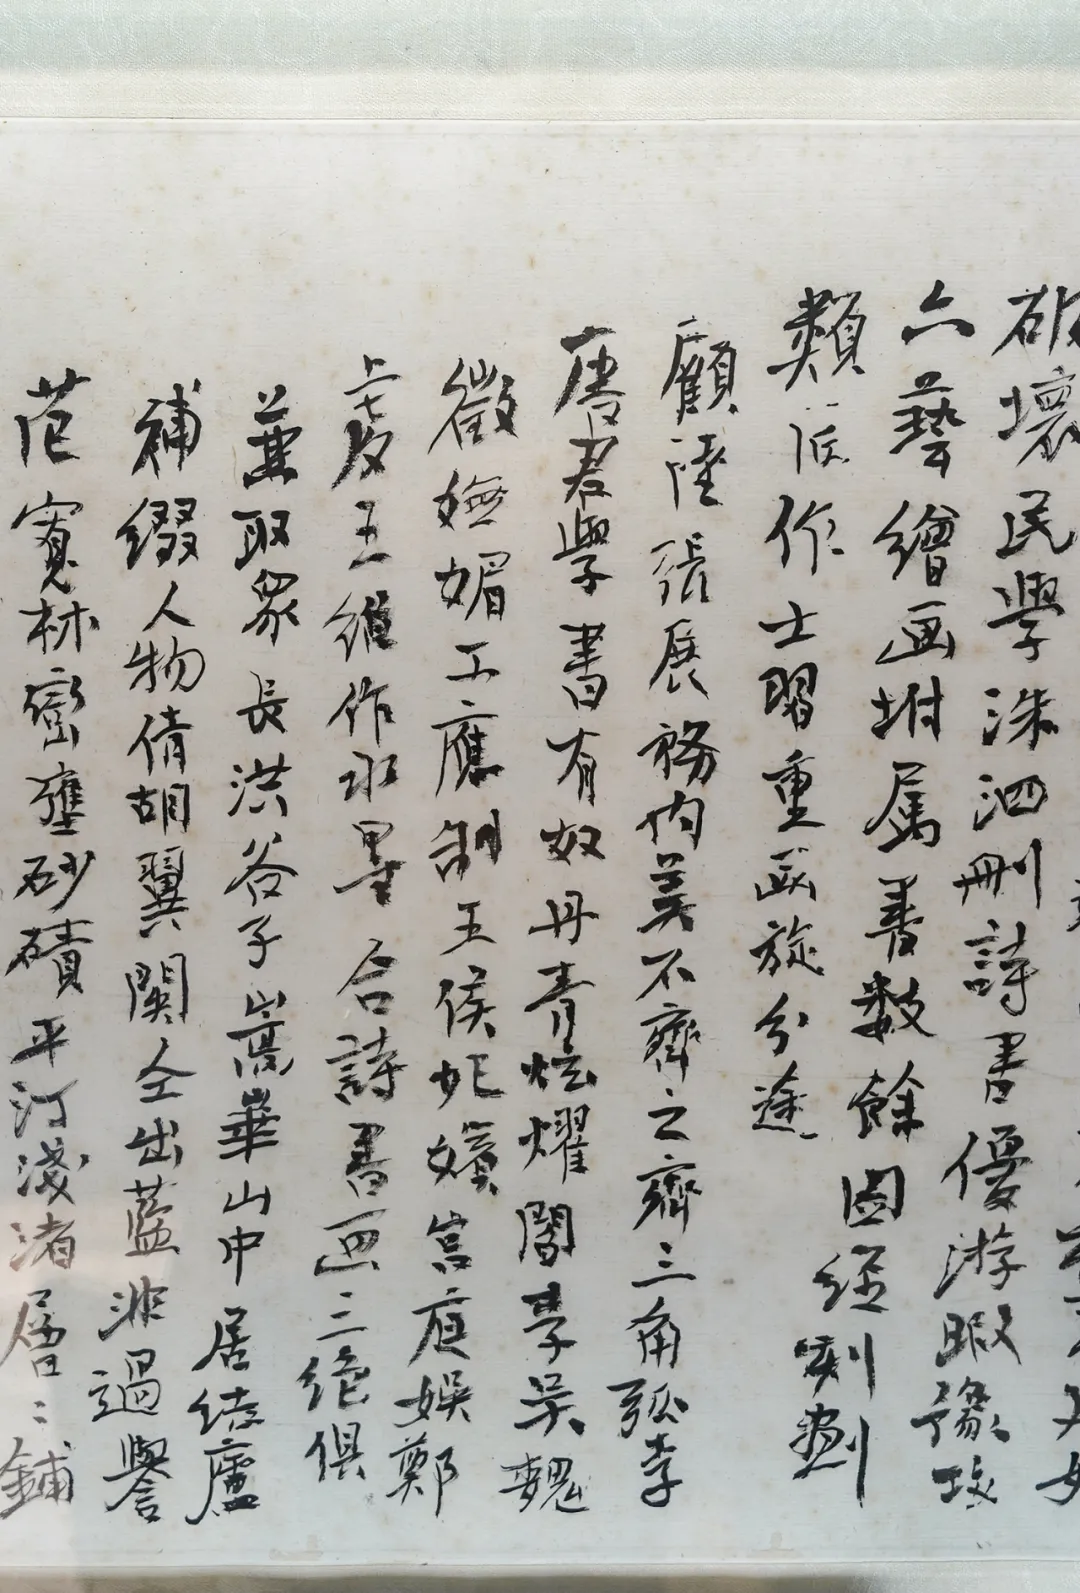 破壞民學洙泗刪詩書優游暇豫攻
六藝繪畫坿屬善數餘圖經刻劃
類匠作士習重畫旋分途
顧陸張展務內美不齊之齊三角弧李
唐君學書有奴丹青炫耀閻李吳魏
徵嫵媚工應制王侯妃嬪宮庭娛鄭
虔王維作水墨合詩書畫三絕俱
兼取眾長洪谷子嵩華山中居結廬
補綴人物倩胡翼關仝出藍非過譽
范寬林巒壅砂磧平汀淺渚層層鋪